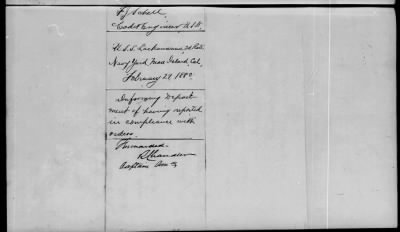 F. J. Schell
Cadet Engineer U.S.N.
U.S.S. Lackawanna, 2d Rate.
Navy Yard, Mare Island, Cal,
February 27, 1880
Informing Depart-
ment of having reported
in compliance with
orders.
Forwarded.
R Chandler
Captain